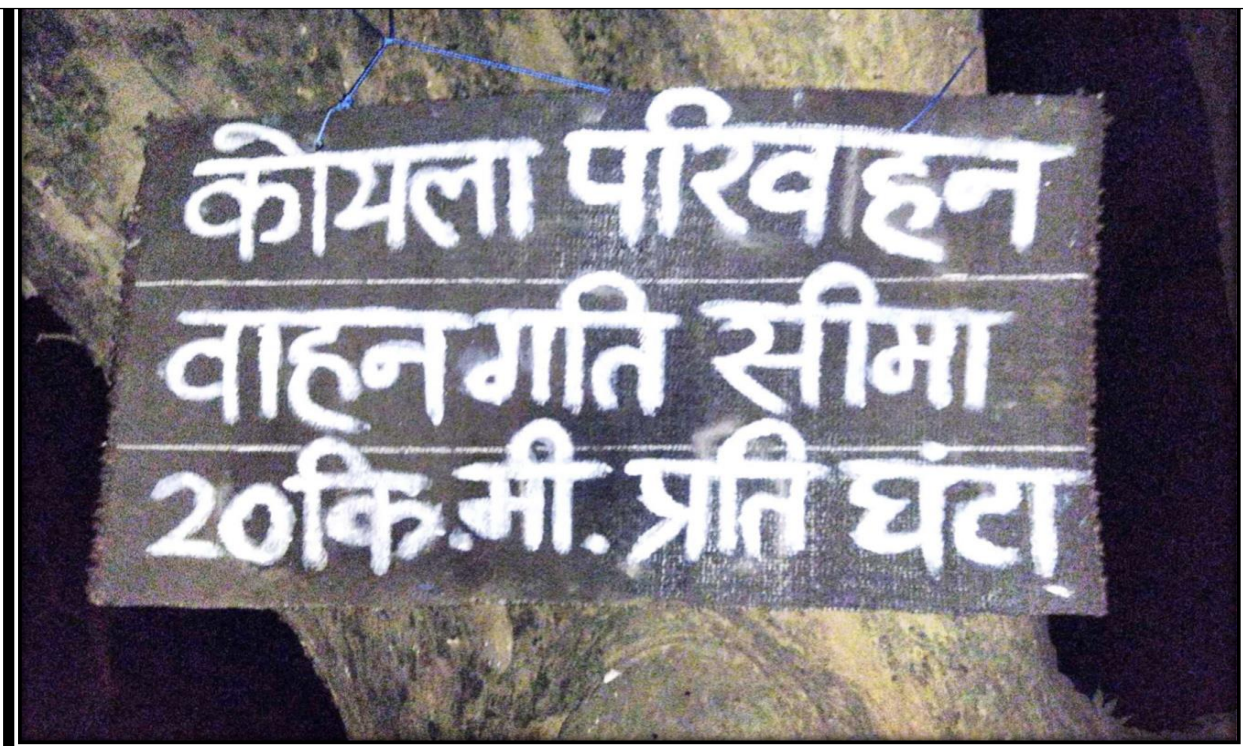 कोयला परिवहन
वाहन गति सीमा
20 कि.मी. प्रति घंटा